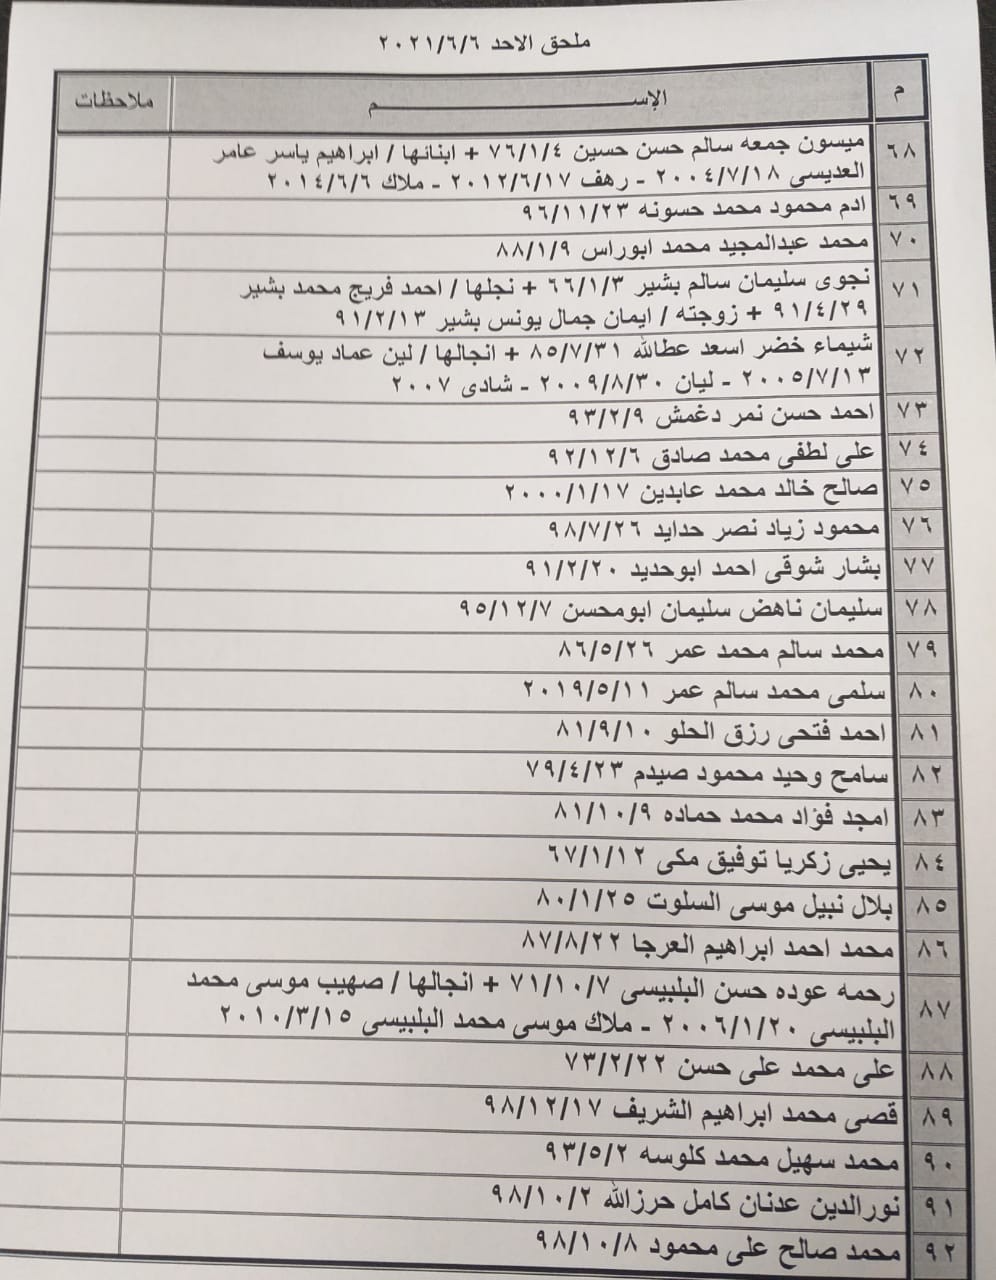 ملحق الاحد ٢٠٢١/٦/٦
م الإســـــم ملاحظات
٦٨ ميسون جمعه سالم حسن حسين ٧٦/١/٤ + ابنائها / ابراهيم ياسر عامر
العديسى ٢٠٠٤/٧/١٨ - رهف ٢٠١٢/٦/١٧ - ملاك ٢٠١٤/٦/٦
٦٩ ادم محمود محمد حسونه ٩٦/١١/٢٣
٧٠ محمد عبدالمجيد محمد ابوراس ٨٨/١/٩
٧١ نجوى سليمان سالم بشير ٦٦/١/٣ + نجلها / احمد فريج محمد بشير
٩١/٤/٢٩ + زوجته / ايمان جمال يونس بشير ٩١/٢/١٣
٧٢ شيماء خضر اسعد عطالله ٨٥/٧/٣١ + انجالها / لين عماد يوسف
٢٠٠٥/٧/١٣ - ليان ٢٠٠٩/٨/٣٠ - شادى ٢٠٠٧
٧٣ احمد حسن نمر دغمش ٩٣/٢/٩
٧٤ على لطفى محمد صادق ٩٢/١٢/٦
٧٥ صالح خالد محمد عابدين ٢٠٠٠/١/١٧
٧٦ محمود زياد نصر حدايد ٩٨/٧/٢٦
٧٧ بشار شوقى احمد ابوحديد ٩١/٢/٢٠
٧٨ سليمان ناهض سليمان ابومحسن ٩٥/١٢/٧
٧٩ محمد سالم محمد عمر ٨٦/٥/٢٦
٨٠ سلمى محمد سالم عمر ٢٠١٩/٥/١١
٨١ احمد فتحى رزق الحلو ٨١/٩/١٠
٨٢ سامح وحيد محمود صيدم ٧٩/٤/٢٣
٨٣ امجد فؤاد محمد حماده ٨١/١٠/٩
٨٤ يحيى زكريا توفيق مكى ٦٧/١/١٢
٨٥ بلال نبيل موسى السلوت ٨٠/١/٢٥
٨٦ محمد احمد ابراهيم العرجا ٨٧/٨/٢٢
٨٧ رحمه عوده حسن البلبيسى ٧١/١٠/٧ + انجالها / صهيب موسى محمد
البلبيسى ٢٠٠٦/١/٢٠ - ملاك موسى محمد البلبيسى ٢٠١٠/٣/١٥
٨٨ على محمد على حسن ٧٣/٢/٢٢
٨٩ قصى محمد ابراهيم الشريف ٩٨/١٢/١٧
٩٠ محمد سهيل محمد كلوسه ٩٣/٥/٢
٩١ نورالدين عدنان كامل حرزالله ٩٨/١٠/٢
٩٢ محمد صالح على محمود ٩٨/١٠/٨